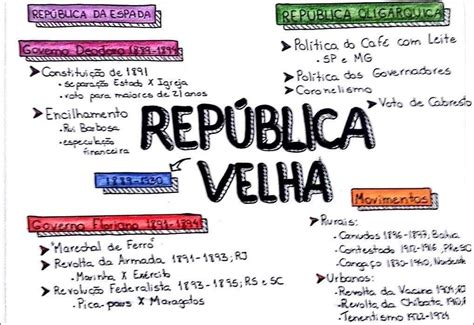 REPÚBLICA DA ESPADA
Governo Deodoro 1889-1891
➤ Constituição de 1891
- separação Estado X Igreja
- voto para maiores de 21 anos
➤ Encilhamento
- Rui Barbosa
- especulação
financeira
REPÚBLICA OLIGÁRQUICA
➤ Política do Café com Leite
- SP e MG
➤ Política dos Governadores
➤ Coronelismo
➤ Voto de Cabresto
REPÚBLICA
VELHA
1889-1930
Governo Floriano 1891-1894
➤ Marechal de Ferro
➤ Revolta da Armada 1891-1893; RJ
- Marinha X Exército
➤ Revolução Federalista 1893-1895; RS e SC
- Pica-paus X Maragatos
Movimentos
➤ Rurais:
- Canudos 1896-1897, Bahia
- Contestado 1912-1916, PR e SC
- Cangaço 1890-1940, Nordeste
➤ Urbanos:
- Revolta da Vacina 1904; RJ
- Revolta da Chibata 1910;
- Tenentismo 1922-1924